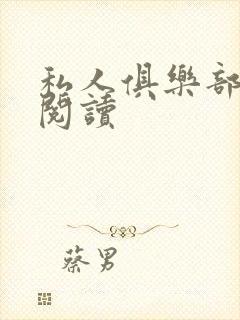 私人俱樂部
閱讀
蔡男